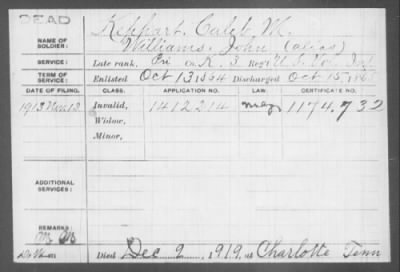 DEAD
NAME OF SOLDIER: Kephart, Caleb M.
Williams, John (alias)
SERVICE: Late rank, Pri Co. K. 3 Reg't U.S. Vol. Inf
TERM OF SERVICE: Enlisted Oct 13 1864 Discharged Oct 15, 186
DATE OF FILING. CLASS. APPLICATION NO. LAW. CERTIFICATE NO.
1913 Nov 12 Invalid, 1412214 1174.732
Widow,
Minor,
ADDITIONAL SERVICES:
REMARKS:
Died Dec 2, 1919, at Charlotte Tenn